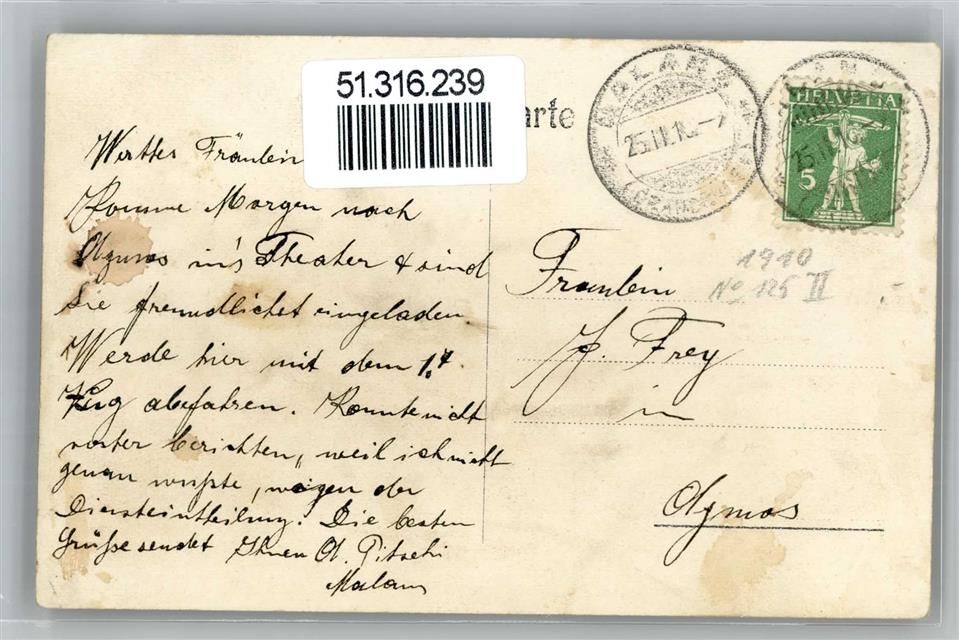 51.316.239
arte
MALANS
25.II.10.-7
(GRAUBÜNDEN)
HELVETIA
5
Werttes Fräulein
Komme Morgen nach
Igmas in's Theater & sind
Sie freundlichst eingeladen.
Werde hier mit dem 1.4
Zug abefahren. Konnte nicht
vorter berichten, weil ich nicht
genau wusste, wegen der
Diensteintheilung! Die besten
Grüsse sendet Ihnen A. Pitschi
Malans
1910
No 126 II
Fraulein
J. Frey
in
Igmas